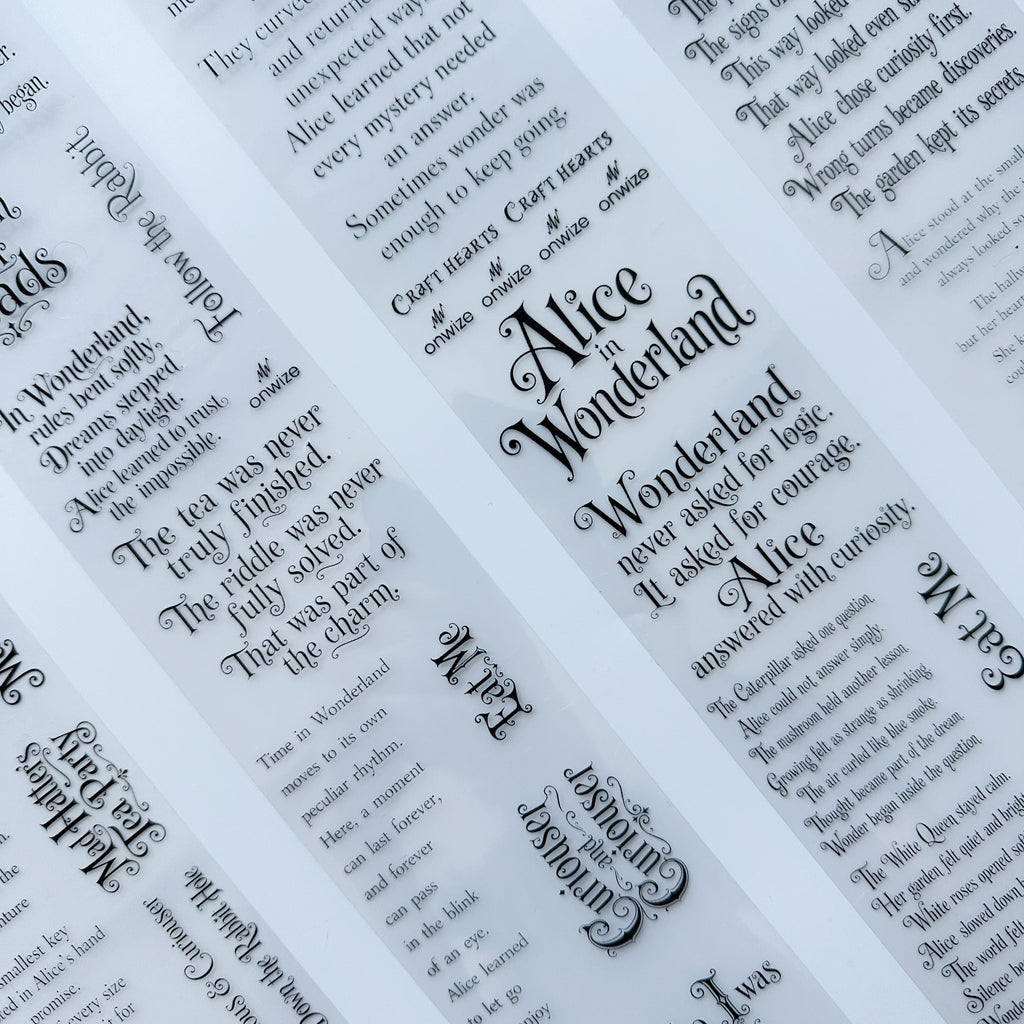 began.
Follow the Rabbit
In Wonderland,
rules bent softly,
Dreams stepped
into daylight.
Alice learned to trust
the impossible.
Me
Mad Hatter's
Tea Party
the
smallest key
in Alice's hand
promise.
every size
it for
They curved
and returned
unexpected way
Alice learned that not
every mystery needed
an answer.
Sometimes wonder was
enough to keep going.
CRAFT HEARTS CRAFT HEARTS
onwize onwize onwize onwize
onwize
The tea was never
truly finished.
The riddle was never
fully solved.
That was part of
the charm.
Time in Wonderland
moves to its own
peculiar rhythm.
Here, a moment
can last forever,
and forever
can pass
in the blink
of an eye.
Alice learned
to let go
Eat Me
Curiouser
and
Curiouser
& Curiouser
Down the Rabbit Hole
Alice
in
Wonderland
Wonderland
never asked for logic.
It asked for courage.
Alice
answered with curiosity.
The Caterpillar asked one question.
Alice could not answer simply.
The mushroom held another lesson.
Growing felt as strange as shrinking
The air curled like blue smoke.
Thought became part of the dream.
Wonder began inside the question.
Eat Me
The White Queen stayed calm.
Her garden felt quiet and bright
White roses opened
Alice slowed down
The world felt
Silence
I was
The signs
This way looked
That way looked even
Alice chose curiosity first.
Wrong turns became discoveries.
The garden kept its secrets
Alice stood at the small
and wondered why the
always looked
The
but her
She